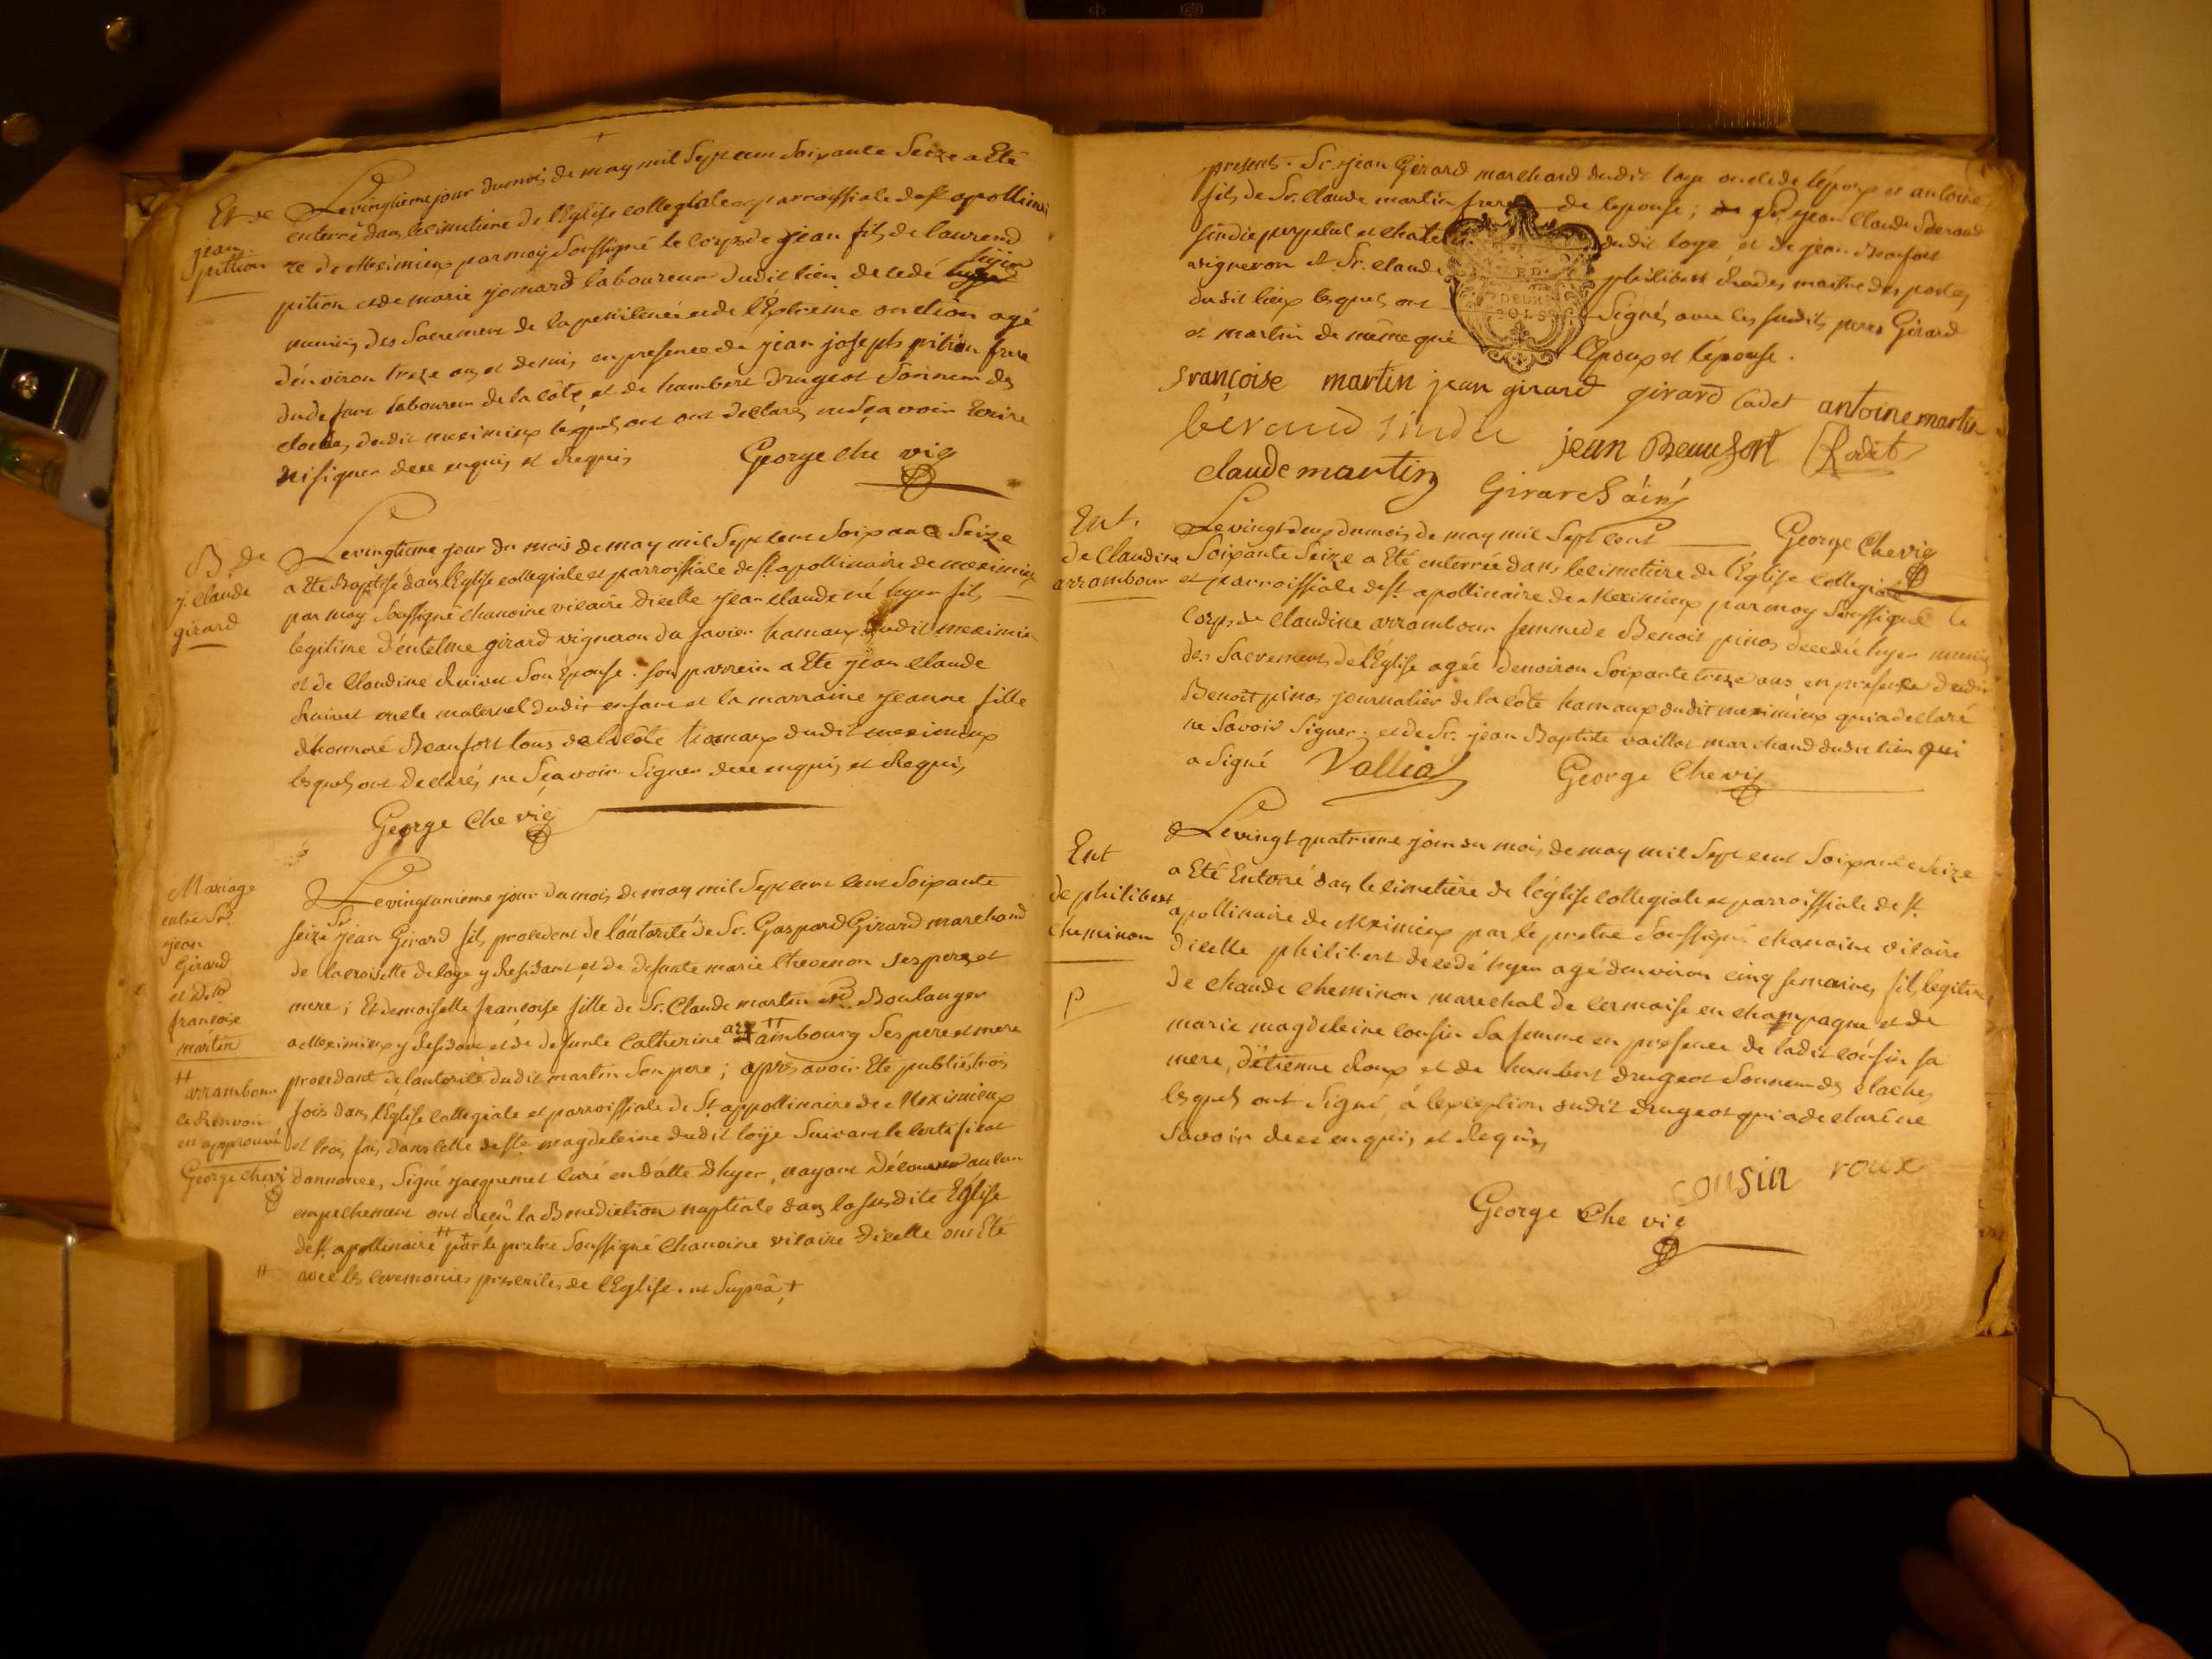 Et de
jean
pittion
Le vingtieme jour du mois de may mil Sept cent Soixante Seize a Eté
enterré dans le cimetiere de l'Eglise collegiale et parroissiale de st apollinai
re de Meximieux par moy Soussigné le corps de jean fils de laurend
pition et de marie jomard laboureur dudit lieu decedé hyer
munis des Sacrement de la penitence et de l'Extreme onction agé
d'environ treze ans et demis en presence de jean joseph pition frere
du defunt laboureur de la côte et de humbert drugeot Sonneur des
cloches dudit meximieux lesquels ont declarés ne Sçavoir Ecrire
ni signer de ce enquis et Requis
George Chevig
B de
j. claude
girard
Le vingtieme jour du mois de may mil Sept cent Soixante Seize
a Eté Baptisé dans l'Eglise collegiale et parroissiale de st. apollinaire de meximieux
par moy Soussigné chanoine vicaire dicelle jean claude né hyer fils
legitime d'entelme girard vigneron du javier hamaux dudit meximieux
et de Claudine Ruivet Son Epouse. son parrein a Eté jean claude
Ruivet oncle maternel dudit enfant et la marraine jeanne fille
d'honnoré Beaufort tous de la côte hamaux dudit meximieux
lesquels ont declarés ne Sçavoir Signer de ce enquis et Requis
George Chevig
Mariage
entre Sr.
jean
Girard
et Dlle
françoise
martin
Le vingt unieme jour du mois de may mil Sept cent cent Soixante
seize Sr jean Girard fils procedent de l'autorité de Sr. Gaspard Girard marchand
de la croisette de loye y Residant et de defunte marie Thevenon ses pere et
mere; Et demoiselle françoise fille de Sr. Claude martin Boulanger
a Meximieux y Residant et de defunte Catherine arrambourg Ses pere et mere
procedant de l'autorité dudit martin Son pere; après avoir Eté publiés trois
fois dans l'Eglise Collegiale et parroissiale de St. appollinaire de Meximieux
et trois fois dans celle de ste. magdeleine dudit loije Suivant le certificat
d'annonces, Signé jacquemet curé en datte d'hyer, n'ayant Découvert aucun
empechement ont Reçû la Benediction nuptiale dans la susdite Eglise
de st. apollinaire par le pretre Soussigné Chanoine vicaire dicelle ont Eté
avec les ceremonies prescrites de l'Eglise. ut Suprà
arrambour
ce Renvoi
en approuvé
George chevi
presents. Sr. jean Girard marchand dudit loye oncle de l'époux et antoine
fils de Sr. Claude martin frere de l'epouse; Sr. jean Claude Beraud
sindic perpetuel et chatel dudit loye et de jean Beaufort
vigneron et Sr. claude philibert Rodet maitre des postes
dudit lieux lesquels ont Signés avec les susdits peres Girard
et martin de même que l'Epoux et l'épouse.
DEUX
SOLS
françoise martin jean girard girard Cadet antoine martin
beraud sindic jean Beaufort Rodet
claude martin Girard áiné
George Chevig
Ent.
de Claudine
arrambour
Le vingt deux du mois de may mil Sept Cent
Soixante Seize a Eté enterrée dans le cimetiere de l'Eglise Collegiale
et parroissiale de st. apollinaire de Meximieux par moy Soussigné le
Corps de Claudine arrambour femme de Benoit pinos decedée hyer munie
des Sacrements de l'Eglise agée denviron Soixante treze ans en presence dudit
Benoit pinos journalier de la côte hamaux dudit meximieux qui a declaré
ne Savoir Signer. et de Sr. jean Baptiste vaillot marchand dudit lieu qui
a Signé Valliot George Chevig
Ent
de philibert
cheminon
p
Le vingt quatrieme jour du mois de may mil Sept cent Soixante Seize
a Eté Enterré dans le cimetière de l'église collegiale et parroissiale de st.
apollinaire de Meximieux par le pretre Soussigné chanoine vicaire
dicelle philibert decedé hyer agé d'environ cinq semaines fils legitime
de claude cheminon marechal de cermaise en champagne et de
marie magdeleine cousin Sa femme en presence de ladite cousin sa
mere, d'etienne Roux et de humbert drugeot Sonneur des cloches
lesquels ont Signé à l'exception dudit drugeot qui a declaré ne
Savoir de ce enquis et Requis
cousin roux
George Chevig